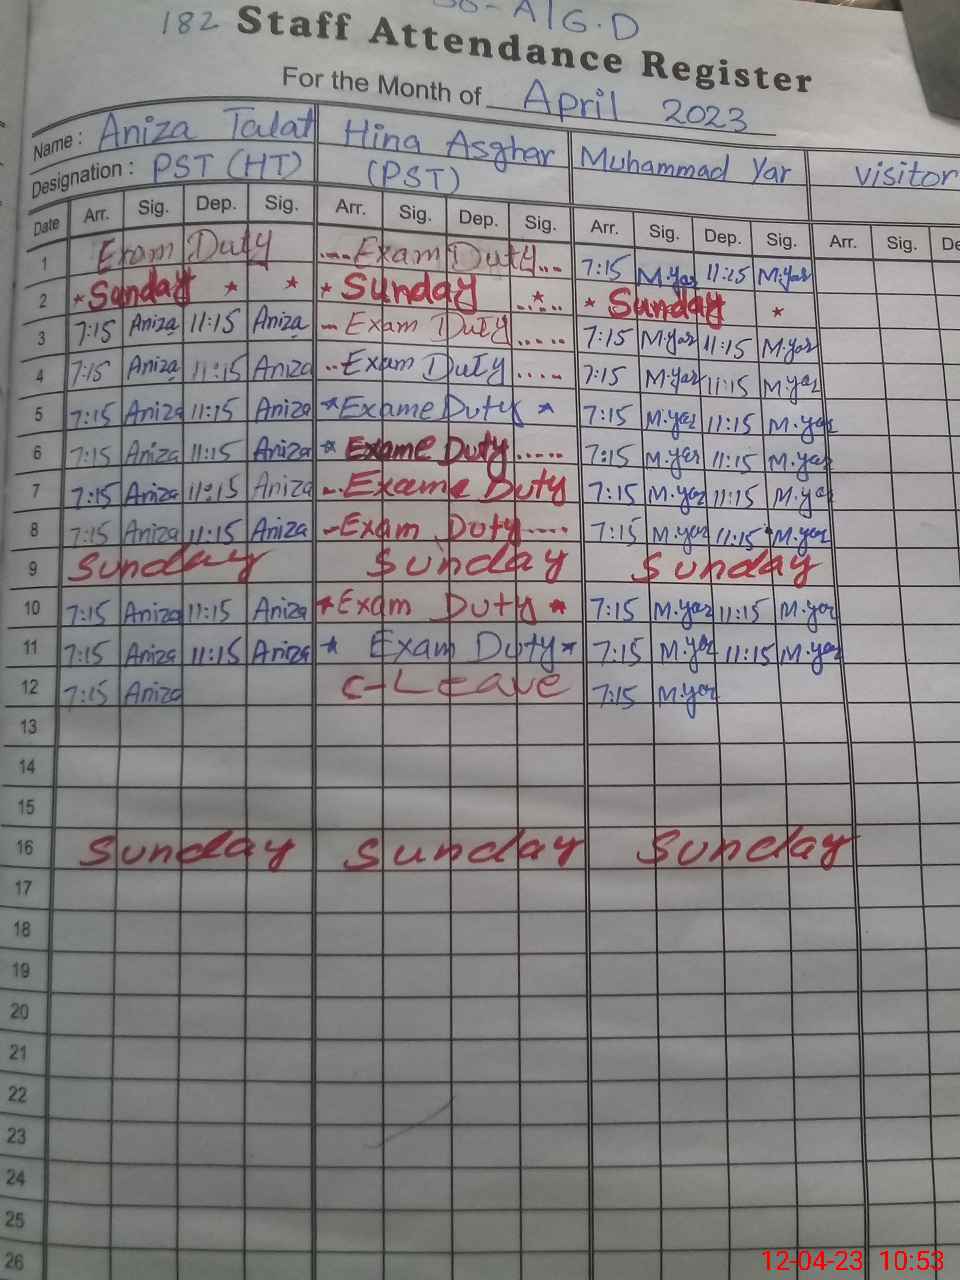 182 Staff Attendance Register
For the Month of April 2023
Name : Aniza Talat Hina Asghar Muhammad Yar visitor
Designation : PST (HT) (PST)
Date Arr. Sig. Dep. Sig. Arr. Sig. Dep. Sig. Arr. Sig. Dep. Sig. Arr. Sig. De
1 Exam Duty ....Exam Duty... 7:15 M.Yar 11:15 M.Yar
2 *Sunday * * * Sunday ..*.. * Sunday *
3 7:15 Aniza 11:15 Aniza --Exam Duty..... 7:15 M.Yar 11:15 M.Yar
4 7:15 Aniza 11:15 Aniza ..Exam Duty .... 7:15 M.Yar 11:15 M.Yar
5 7:15 Aniza 11:15 Aniza *Exame Duty * 7:15 M.Yar 11:15 M.Yar
6 7:15 Aniza 11:15 Aniza * Exame Duty..... 7:15 M.Yar 11:15 M.Yar
7 7:15 Aniza 11:15 Aniza --Exame Duty 7:15 M.Yar 11:15 M.Yar
8 7:15 Aniza 11:15 Aniza --Exam Duty.... 7:15 M.Yar 11:15 M.Yar
9 Sunday Sunday Sunday
10 7:15 Aniza 11:15 Aniza *Exam Duty * 7:15 M.Yar 11:15 M.Yar
11 7:15 Aniza 11:15 Aniza * Exam Duty* 7:15 M.Yar 11:15 M.Yar
12 7:15 Aniza C-Leave 7:15 M.Yar
13
14
15
16 Sunday Sunday Sunday
17
18
19
20
21
22
23
24
25
26
12-04-23 10:53